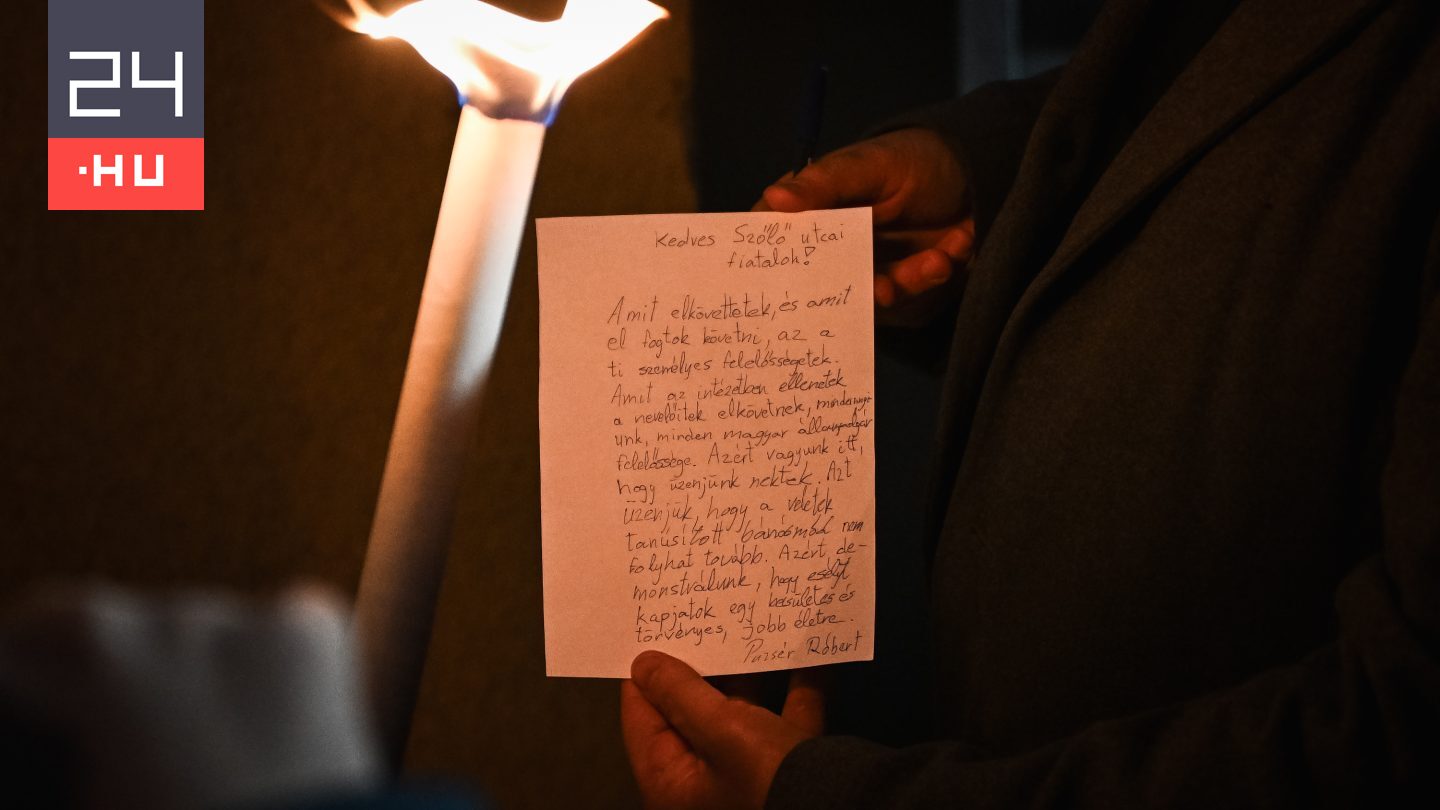 24
.HU
Kedves Szőlő utcai
fiatalok!
Amit elkövettetek, és amit
el fogtok követni, az a
ti személyes felelősségetek.
Amit az intézetben ellenetek
a nevelőitek elkövetnek, mindannyi-
unk, minden magyar állampolgár
felelőssége. Azért vagyunk itt,
hogy üzenjünk nektek. Azt
üzenjük, hogy a veletek
tanúsított bánásmód nem
folyhat tovább. Azért de-
monstrálunk, hogy esélyt
kapjatok egy becsületes és
törvényes, jobb életre.
Puzsér Róbert